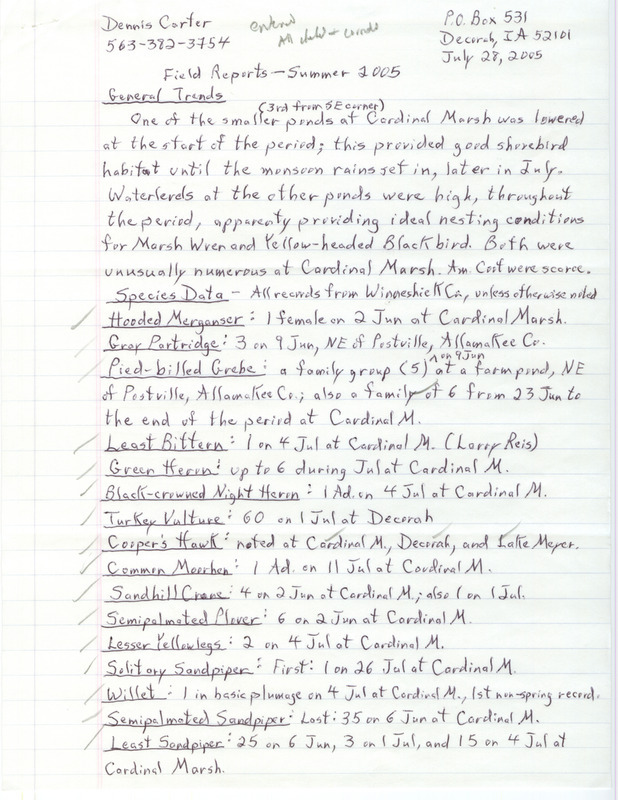 Dennis Carter
563-382-3754
entered
All data + cards
P.O. Box 531
Decorah, IA 52101
July 28, 2005
Field Reports - Summer 2005
General Trends
(3rd from SE corner)
One of the smaller ponds at Cardinal Marsh was lowered
at the start of the period; this provided good shorebird
habitat until the monsoon rains set in, later in July.
Waterlevels at the other ponds were high, throughout
the period, apparenty providing ideal nesting conditions
for Marsh Wren and Yellow-headed Blackbird. Both were
unusually numerous at Cardinal Marsh. Am. Coot were scarce.
Species Data - All records from Winneshiek Co., unless otherwise noted
Hooded Merganser: 1 female on 2 Jun at Cardinal Marsh.
Gray Partridge: 3 on 9 Jun, NE of Postville, Allamakee Co.
Pied-billed Grebe: a family group (5) ^on 9 Jun at a farm pond, NE
of Postville, Allamakee Co.; also a family of 6 from 23 Jun to
the end of the period at Cardinal M.
Least Bittern: 1 on 4 Jul at Cardinal M. (Larry Reis)
Green Heron: up to 6 during Jul at Cardinal M.
Black-crowned Night Heron: 1 Ad. on 4 Jul at Cardinal M.
Turkey Vulture: 60 on 1 Jul at Decorah
Cooper's Hawk: noted at Cardinal M., Decorah, and Lake Meyer.
Common Moorhen: 1 Ad. on 11 Jul at Cardinal M.
Sandhill Crane: 4 on 2 Jun at Cardinal M.; also 1 on 1 Jul.
Semipalmated Plover: 6 on 2 Jun at Cardinal M.
Lesser Yellowlegs: 2 on 4 Jul at Cardinal M.
Solitary Sandpiper: First: 1 on 26 Jul at Cardinal M.
Willet: 1 in basic plumage on 4 Jul at Cardinal M., 1st non-spring record.
Semipalmated Sandpiper: Last: 35 on 6 Jun at Cardinal M.
Least Sandpiper: 25 on 6 Jun, 3 on 1 Jul, and 15 on 4 Jul at
Cardinal Marsh.